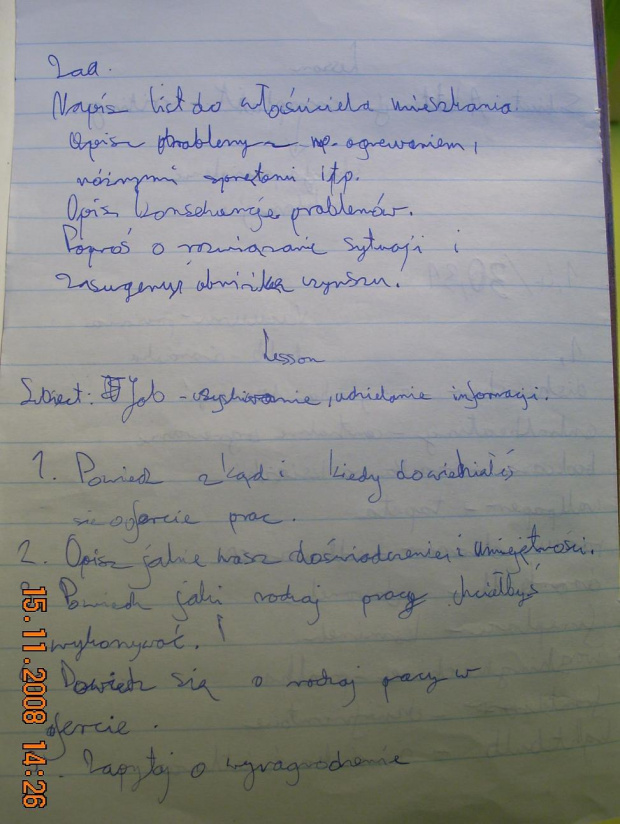 Zad.
Napisz list do właściciela mieszkania
Opisz problemy z np. ogrewaniem,
różnymi sprętami itp.
Opisz konsekwencje problemów.
Poproś o rozwiązanie sytuacji i
zasugeruj obniżkę czynszu.
Lesson
Subject: Job - uzyskiwanie, udzielanie informacji.
1. Powiedz skąd i kiedy dowiedziałeś
się o ofercie prac.
2. Opisz jakie masz doświadczenie i umiejętności.
Powiedz jaki rodzaj pracy chciałbyś
wykonywać.
Dowiedz się o rodzaj pracy w
ofercie.
Zapytaj o wynagrodzenie
15.11.2008 14:26